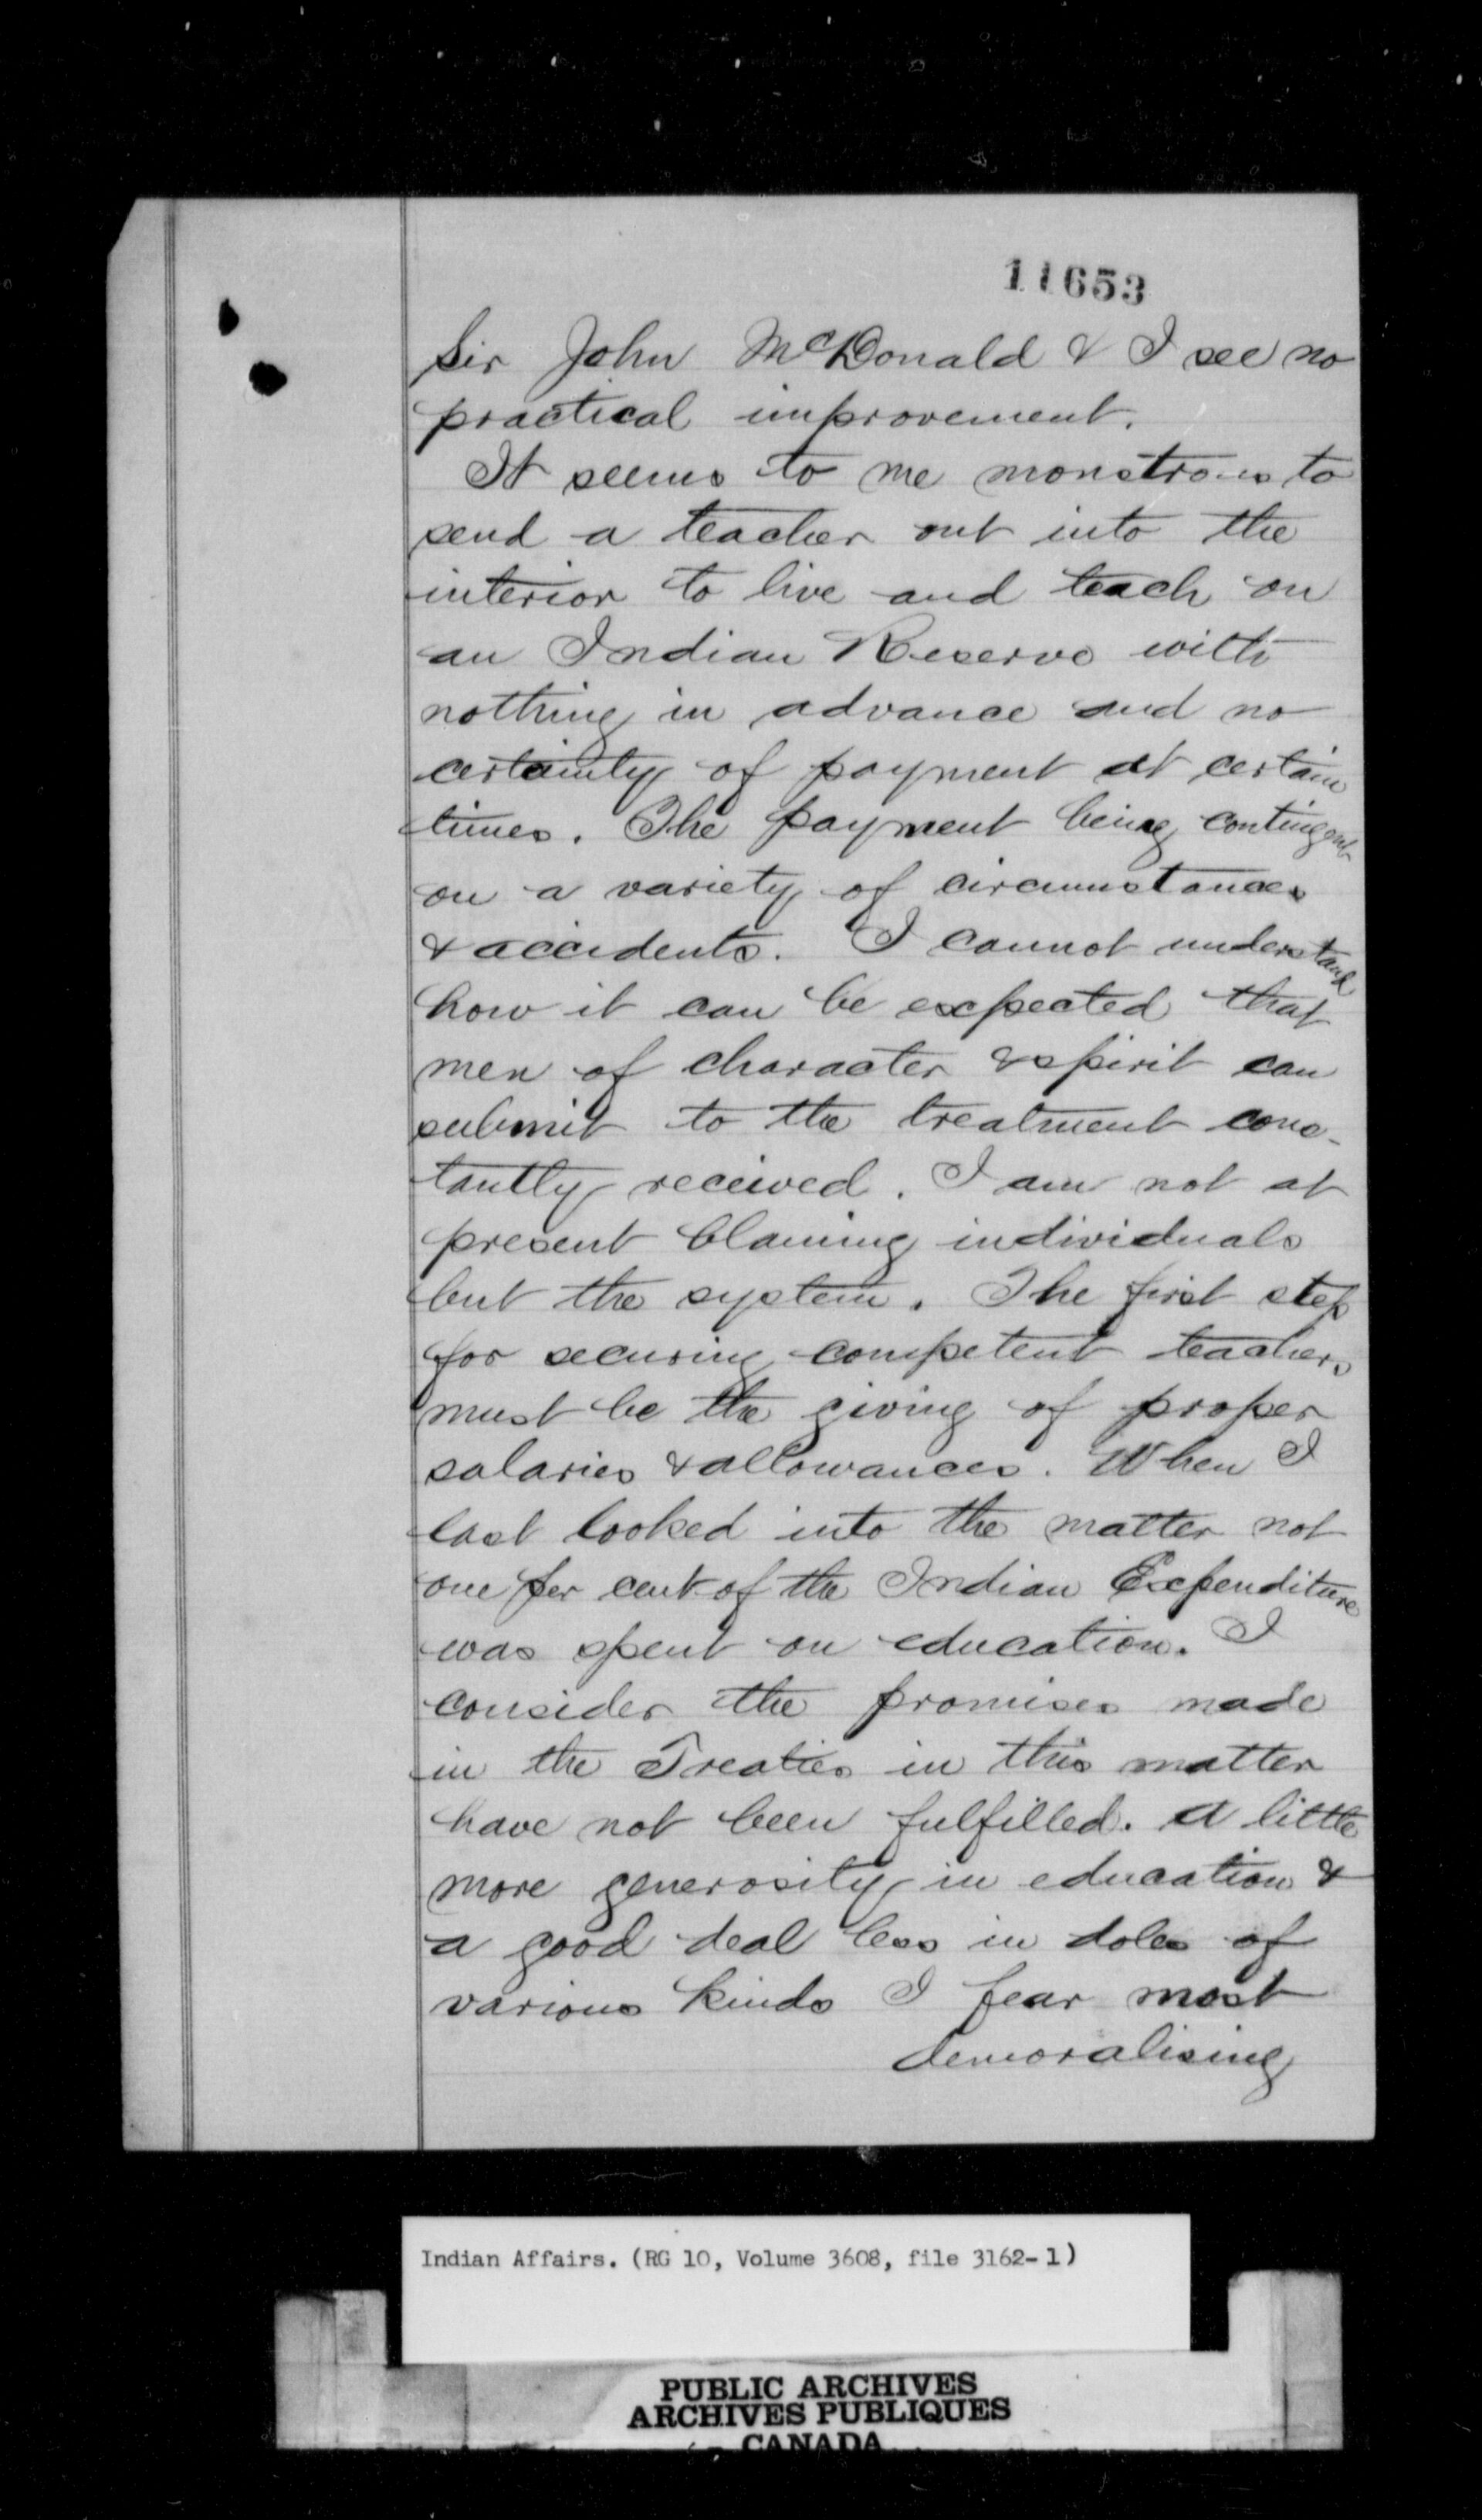 11653
Sir John McDonald & I see no
practical improvement.
It seems to me monstrous to
send a teacher out into the
interior to live and teach on
an Indian Reserve with
nothing in advance and no
certainty of payment at certain
times. The payment being contingent
on a variety of circumstances
& accidents. I cannot understand
how it can be expected that
men of character & spirit can
submit to the treatment cons-
tantly received. I am not at
present blaming individuals
but the system. The first step
for securing competent teachers
must be the giving of proper
salaries & allowances. When I
last looked into the matter not
one per cent of the Indian Expenditure
was spent on education. I
consider the promises made
in the Treaties in this matter
have not been fulfilled. A little
more generosity in education &
a good deal less in doles of
various kinds I fear most
demoralising
Indian Affairs. (RG 10, Volume 3608, file 3162-1)
PUBLIC ARCHIVES
ARCHIVES PUBLIQUES
CANADA